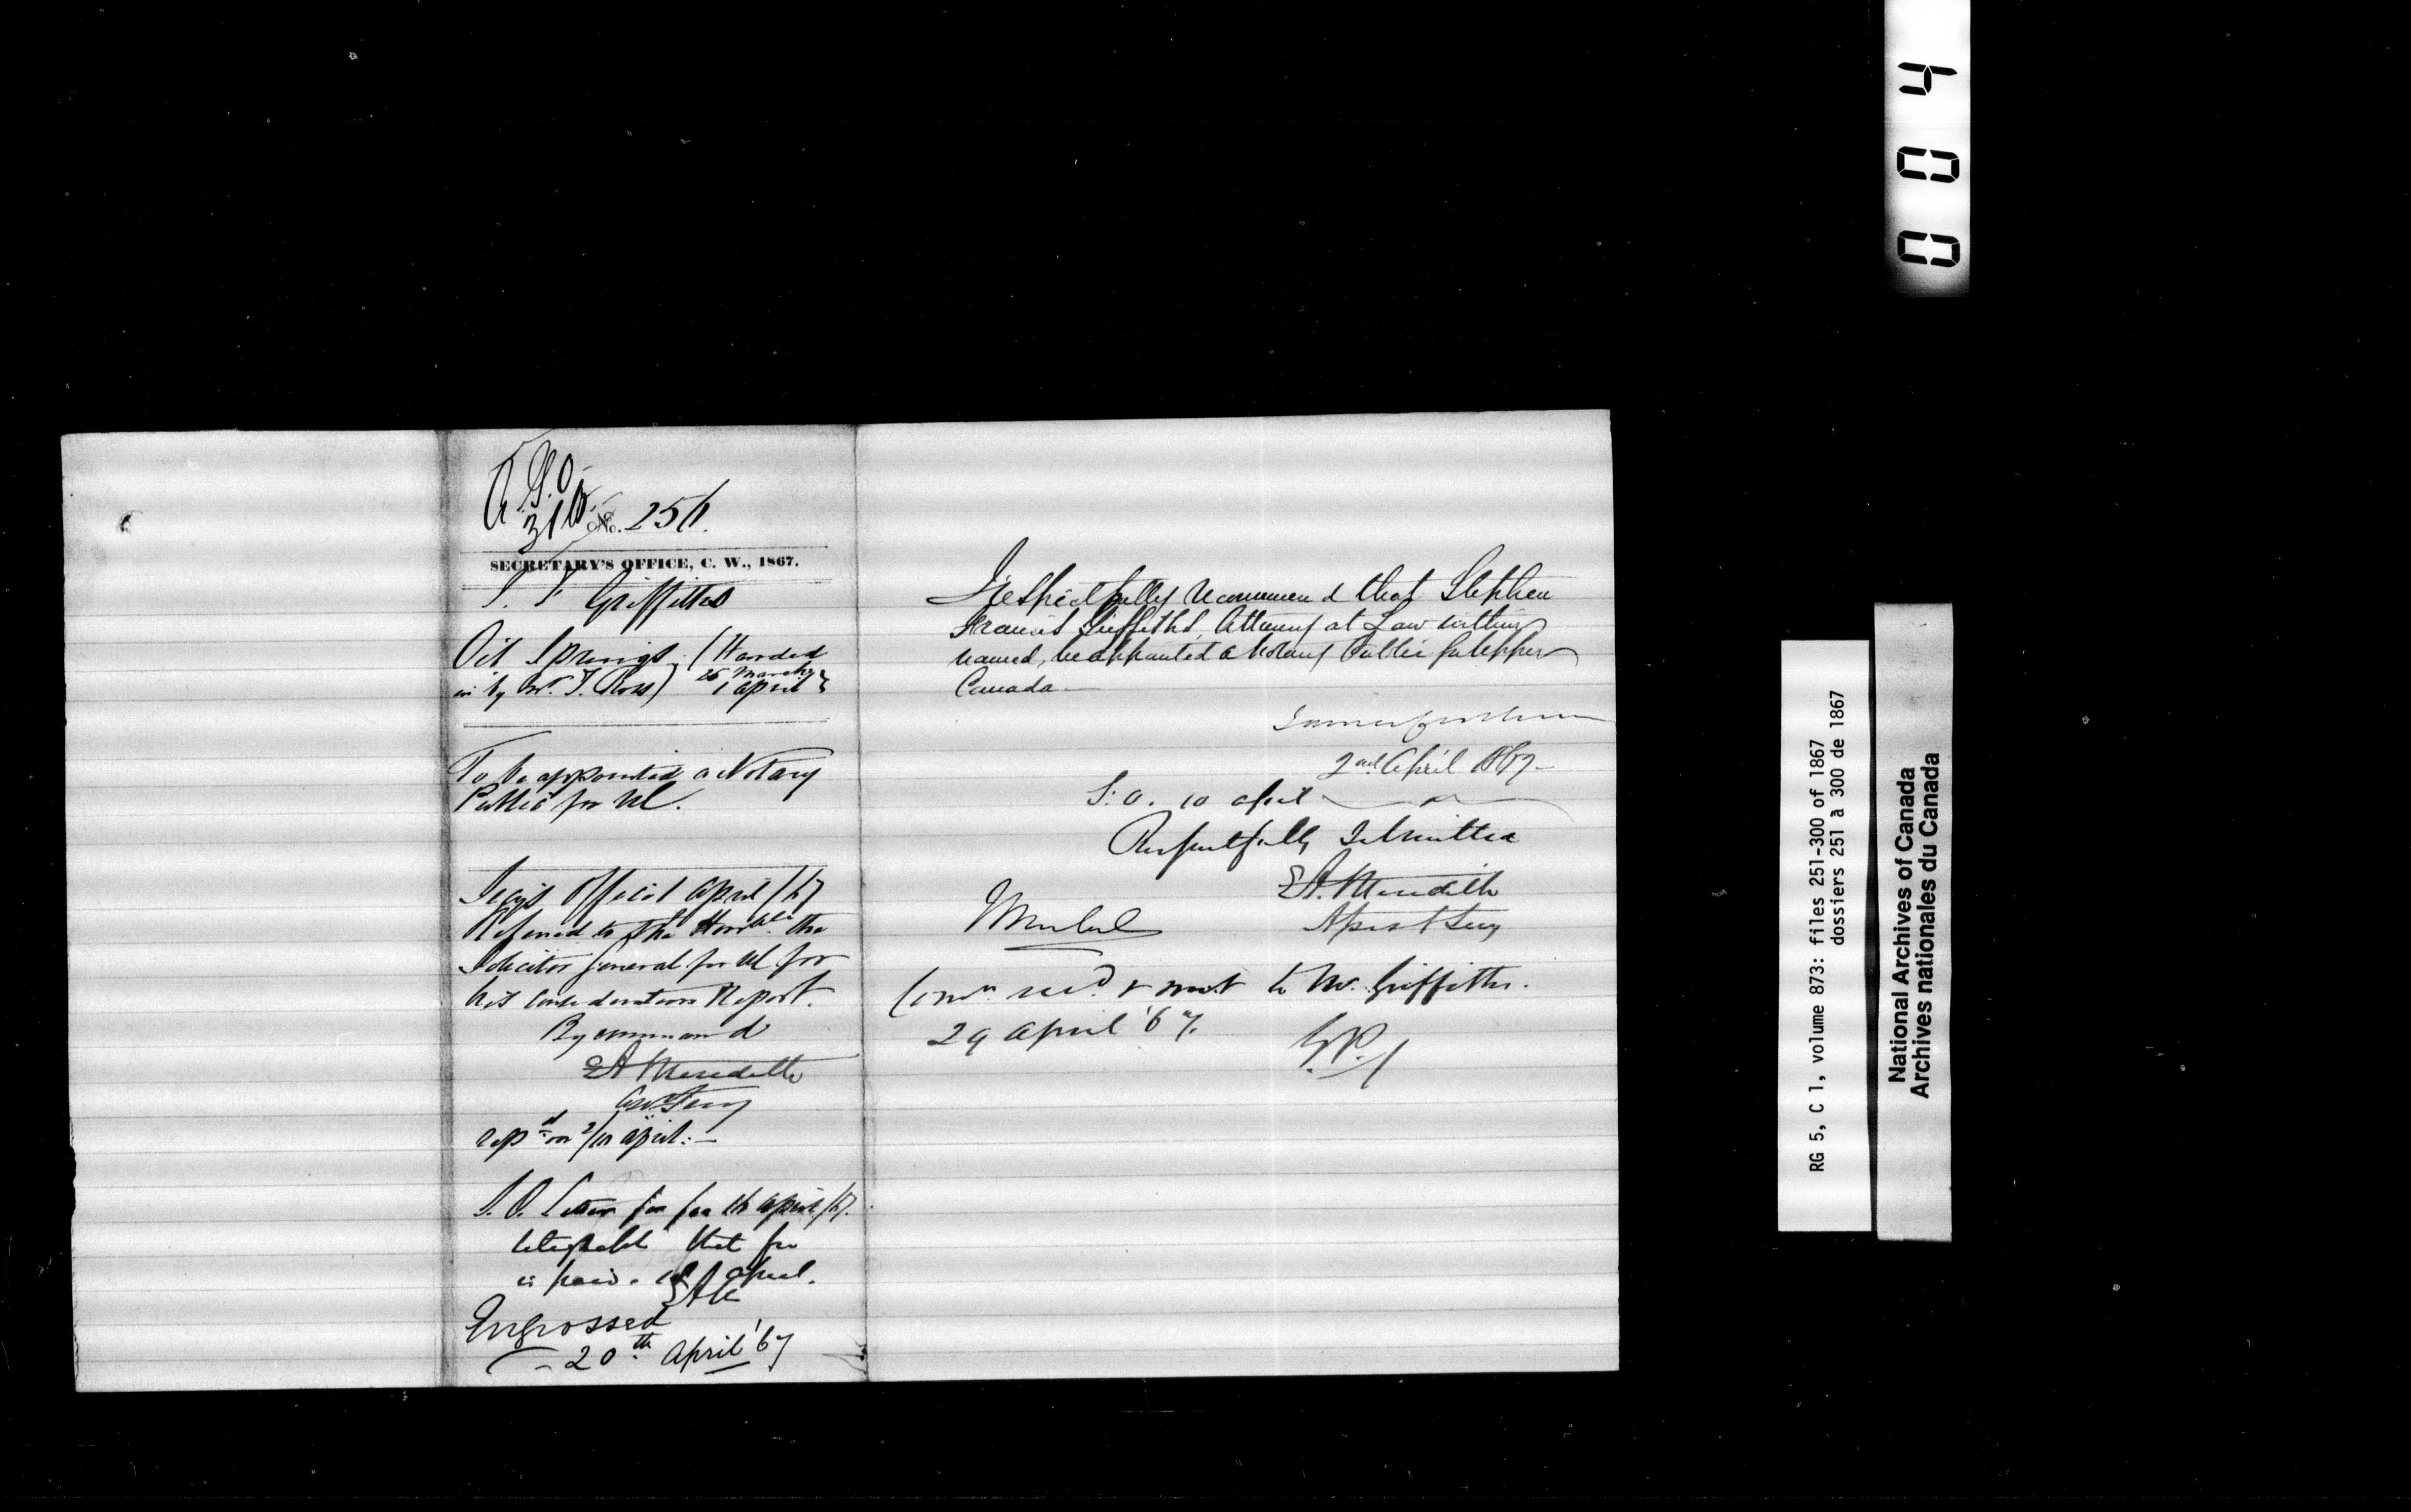 No. 256.
SECRETARY'S OFFICE, C. W., 1867.
S. F. Griffiths
Oil Springs (Handed
in by W. T. Ross) 26 March
1 April
To be appointed a Notary
Public for UC.
Secy's Office 1 April /67
Referred to the Honble. the
Solicitor General for UC for
his consideration Report.
By command
E A Meredith
Asst Secy
rep'd on 2/10 April:—
S. O. Letter for fee 16 April /67.
that fee
is paid. April.
Engrossed
- 20th April '67
I respectfully recommend that Stephen
Francis Griffiths, Attorney at Law within
named, be appointed a Notary Public for Upper
Canada.
2nd April 1867—
S. O. 10 April
Respectfully Submitted
E A. Meredith
Assist Secy
Comn recd & sent to Mr. Griffiths.
29 April '67.
004
RG 5, C 1, volume 873: files 251-300 of 1867
dossiers 251 à 300 de 1867
National Archives of Canada
Archives nationales du Canada